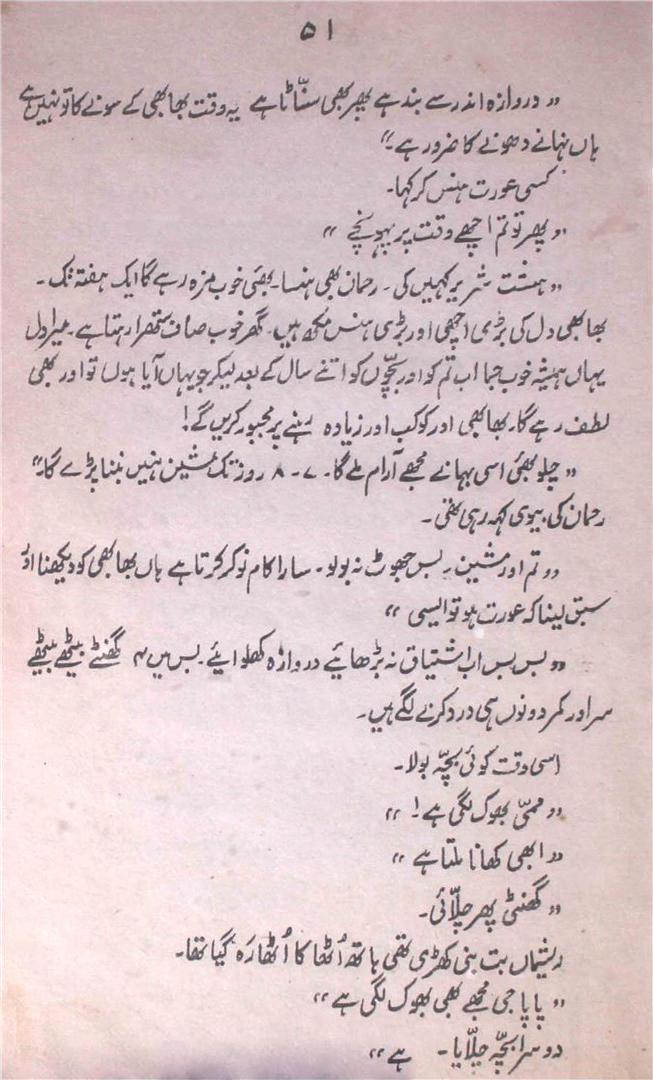 ۵۱
”دروازہ اندر سے بند ہے پھر بھی سنّاٹا ہے یہ وقت بھابھی کے سونے کا تو نہیں ہے
ہاں نہانے دھونے کا ضرور ہے۔“
کسی عورت ہنس کر کہا۔
”پھر تو تم اچھے وقت پر پہونچے“
”ہشت شریر کہیں کی۔ رحمان بھی ہنسا۔ بھئی خوب مزہ رہے گا ایک ہفتہ تک۔
بھابھی دل کی بڑی اچھی اور بڑی ہنس مکھ ہیں۔ گھر خوب صاف ستھرا رہتا ہے۔ میرا دل
یہاں ہمیشہ خوب جما اب تم کو اور بچّوں کو اتنے سال کے بعد لیکر جو یہاں آیا ہوں تو اور بھی
لطف رہے گا۔ بھابھی اور کوکب اور زیادہ رہنے پر مجبور کریں گے!
”چلو بھئی اسی بہانے مجھے آرام ملے گا۔ ۷۔ ۸ روز تک مشین نہیں بننا پڑے گا۔“
رحمان کی بیوی کہہ رہی تھی۔
”تم اور مشین۔ بس جھوٹ نہ بولو۔ سارا کام نوکر کرتا ہے ہاں بھابھی کو دیکھنا اور
سبق لینا کہ عورت ہو تو ایسی“
”بس بس اب اشتیاق نہ بڑھائیے دروازہ کھلوائیے۔ بس میں ۴ گھنٹے بیٹھے بیٹھے
سر اور کمر دونوں ہی درد کرنے لگے ہیں۔
اسی وقت کوئی بچّہ بولا۔
”ممّی بھوک لگی ہے!“
”ابھی کھانا ملتا ہے“
”گھنٹی پھر چلّائی۔
ریشماں بت بنی کھڑی تھی ہاتھ اُٹھا کا اُٹھا رَہ گیا تھا۔
”پاپا جی مجھے بھی بھوک لگی ہے“
دوسرا بچّہ چلّایا۔ ہے“